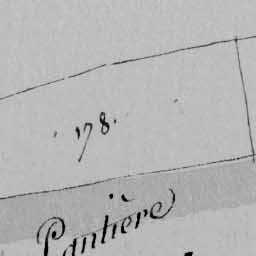 178.
Pantière